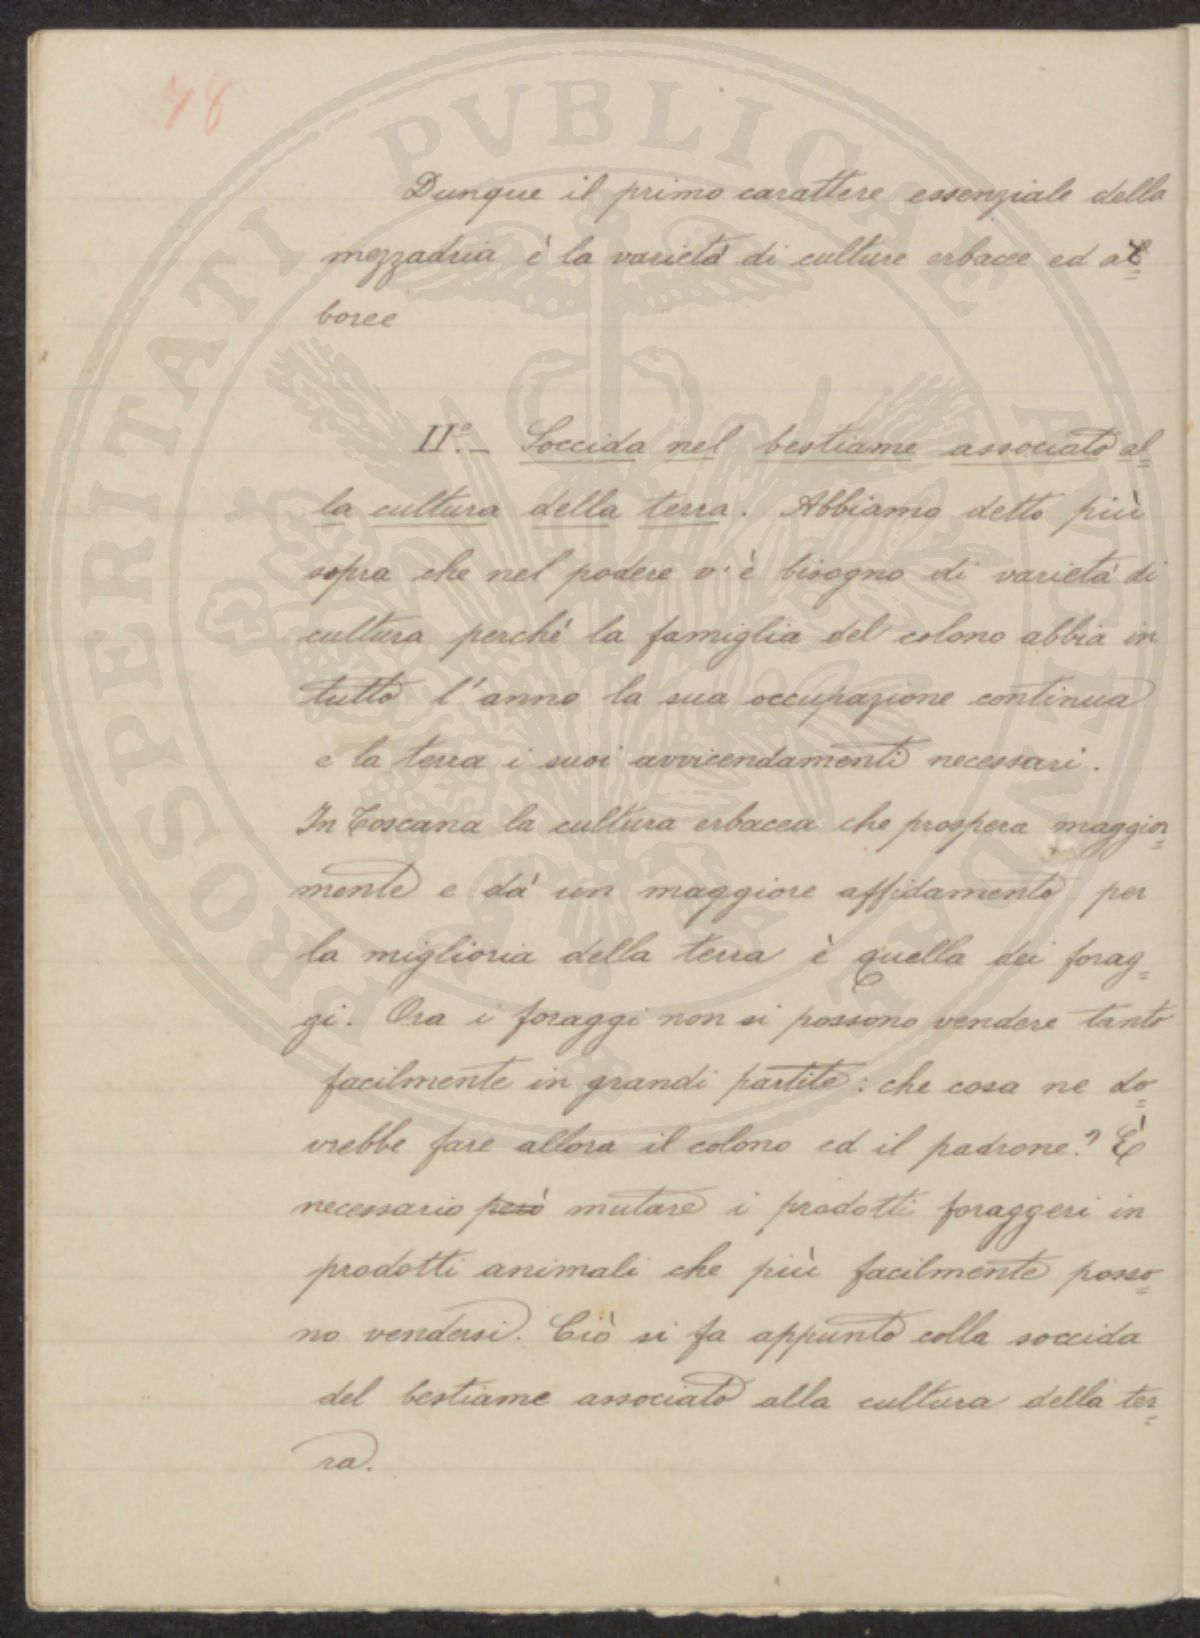 78
Dunque il primo carattere essenziale della
mezzadria è la varietà di culture erbacee ed ar=
boree
II°.- Soccida nel bestiame associato al=
la cultura della terra. Abbiamo detto più
sopra che nel podere v'è bisogno di varietà di
cultura perché la famiglia del colono abbia in
tutto l'anno la sua occupazione continua
e la terra i suoi avvicendamenti necessari.
In Toscana la cultura erbacea che prospera maggior=
mente e dà un maggiore affidamento per
la miglioria della terra è quella dei forag=
gi. Ora i foraggi non si possono vendere tanto
facilmente in grandi partite: che cosa ne do=
vrebbe fare allora il colono ed il padrone? È
necessario però mutare i prodotti foraggeri in
prodotti animali che più facilmente posso=
no vendersi. Ciò si fa appunto colla soccida
del bestiame associato alla cultura della ter=
ra.
PROSPERITATI PVBLICAE AVGENDAE